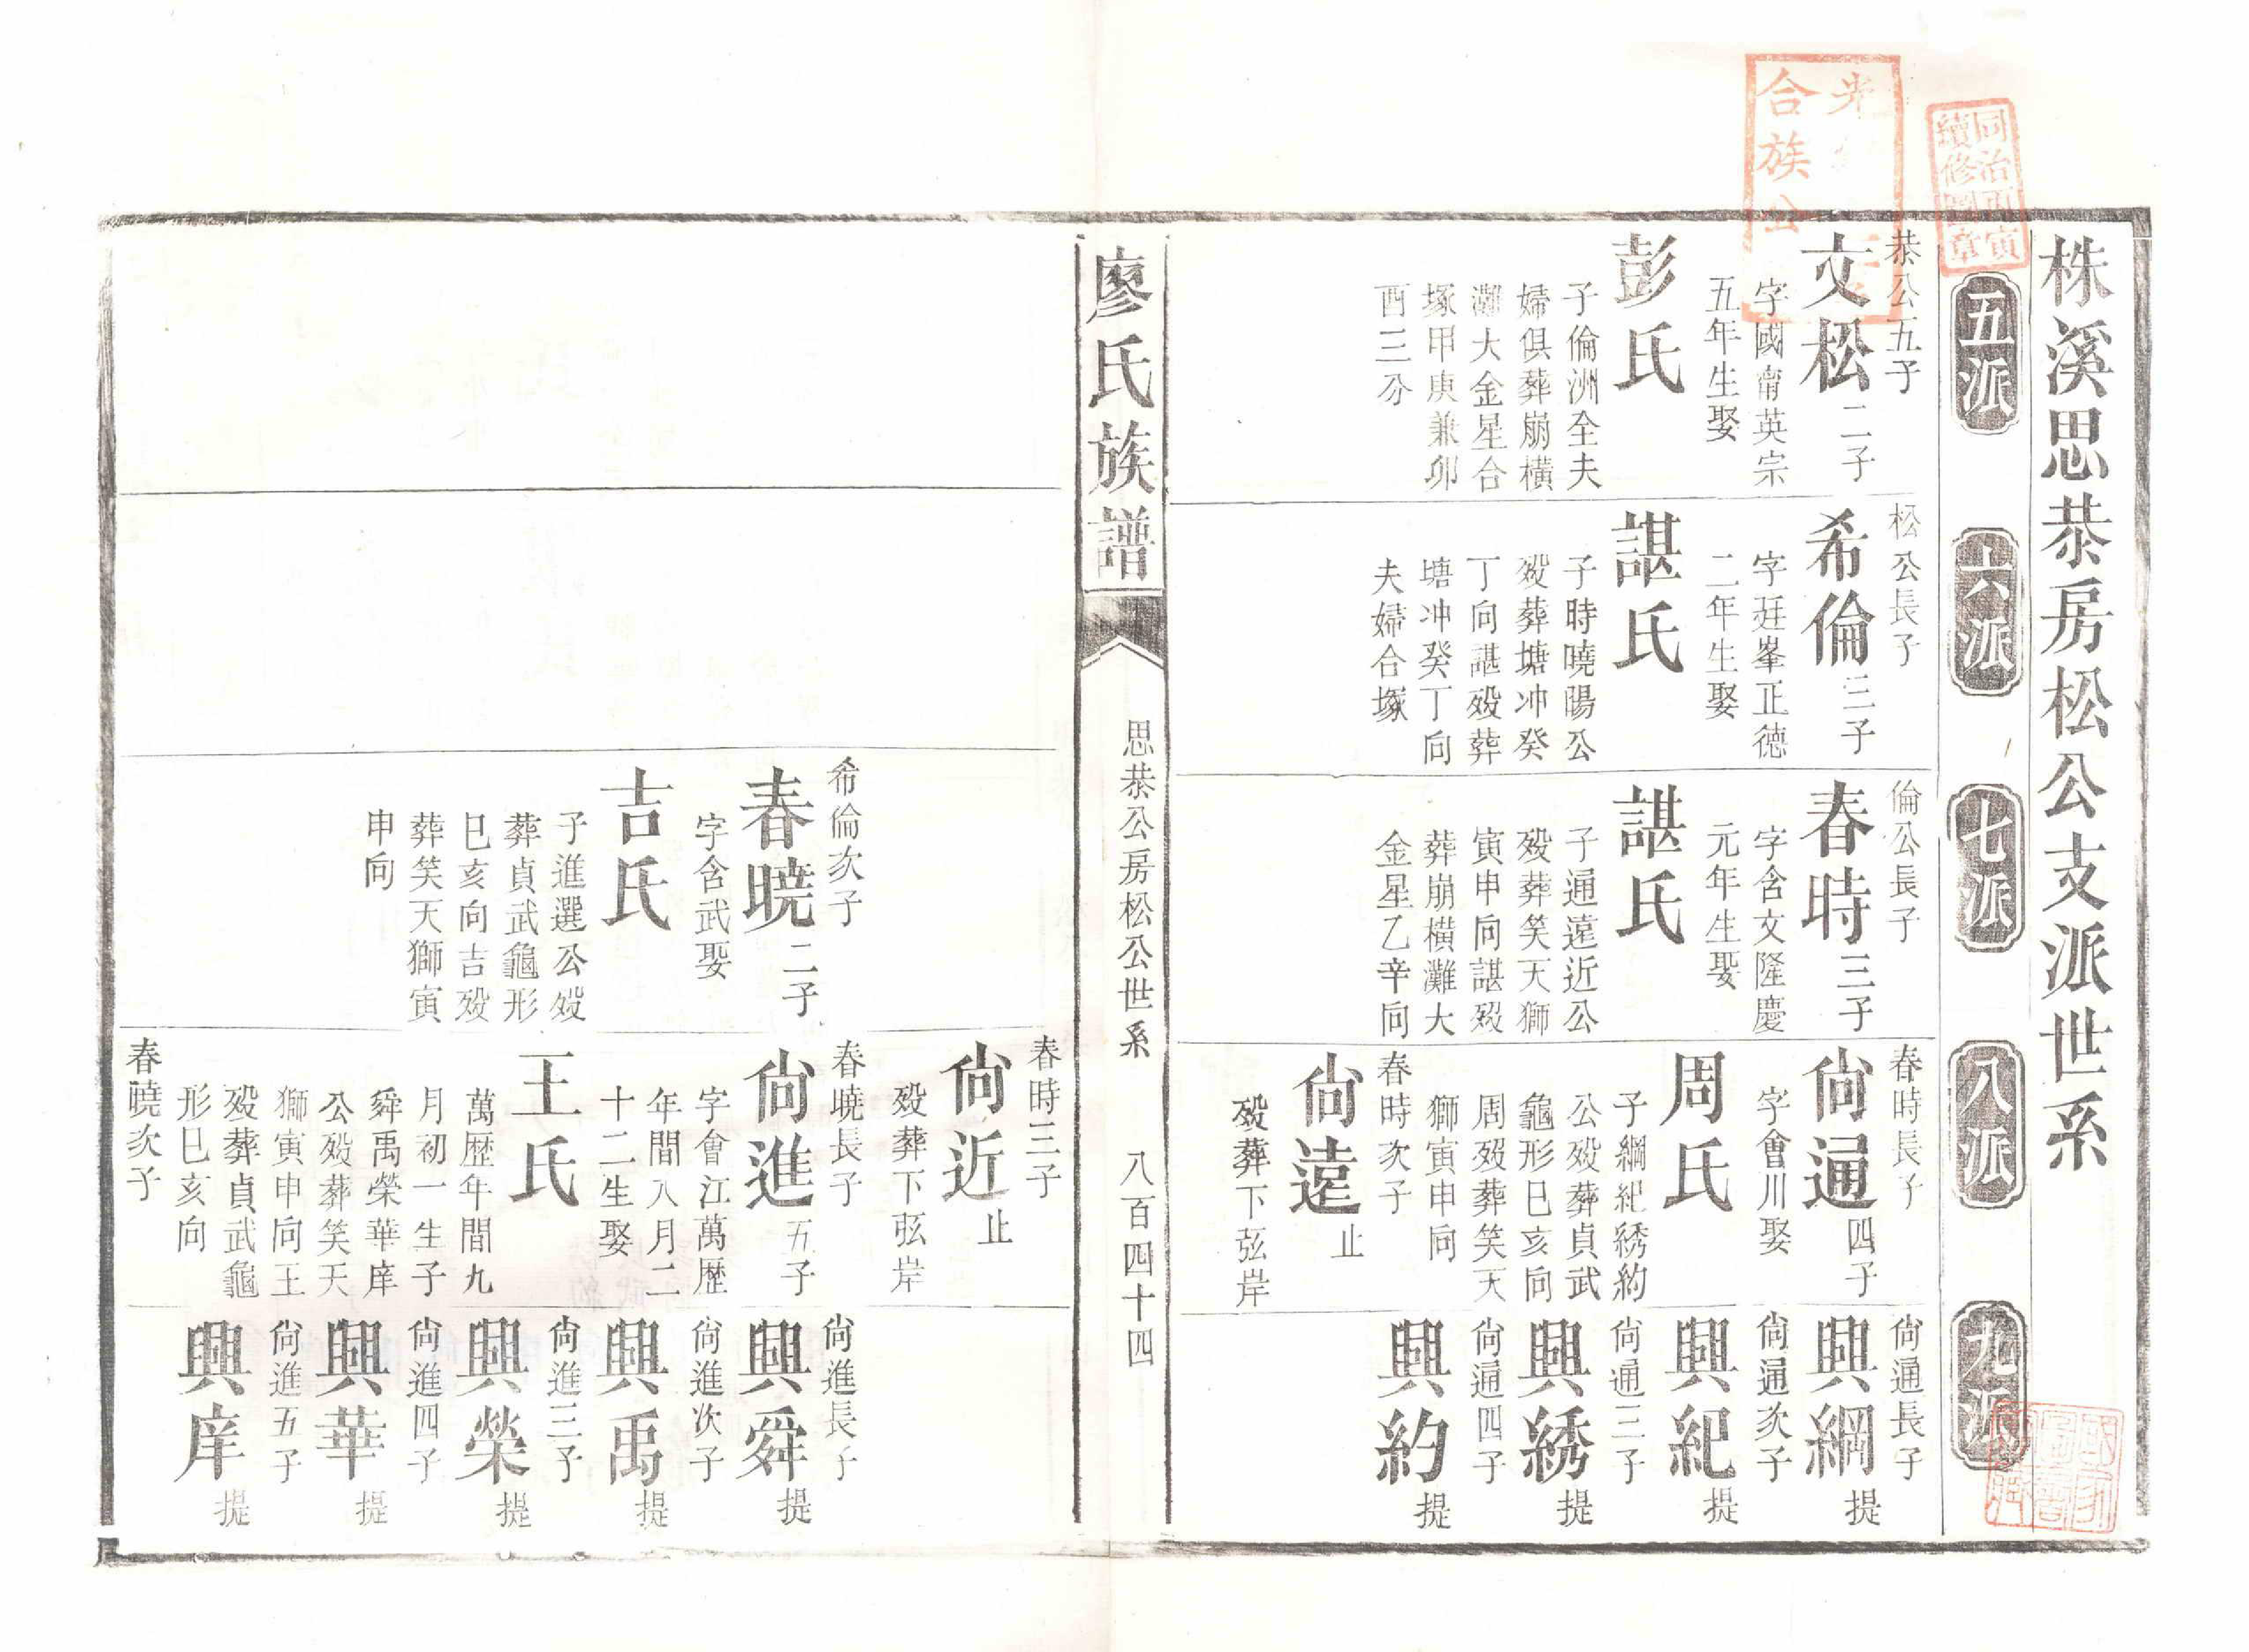 株溪思恭房松公支派世系
同治丙寅
續修圖章
合族公
五派
六派
七派
八派
九派
恭公五子
文松二子
字國甯英宗
五年生娶
彭氏
子倫洲全夫
婦俱葬崩橫
灘大金星合
塚甲庚兼卯
酉三分
松公長子
希倫三子
字廷峯正德
二年生娶
諶氏
子時曉陽公
歿葬塘冲癸
丁向諶歿葬
塘冲癸丁向
夫婦合塚
倫公長子
春時三子
字含文隆慶
元年生娶
諶氏
子通遠近公
歿葬笑天獅
寅申向諶歿
葬崩橫灘大
金星乙辛向
春時長子
尙通四子
字會川娶
周氏
子綱紀綉約
公歿葬貞武
龜形巳亥向
周歿葬笑天
獅寅申向
春時次子
尙遠止
歿葬下弦岸
尙通長子
興綱提
尙通次子
興紀提
尙通三子
興綉提
尙通四子
興約提
廖氏族譜
思恭公房松公世系
八百四十四
希倫次子
春曉二子
字含武娶
吉氏
子進選公歿
葬貞武龜形
巳亥向吉歿
葬笑天獅寅
申向
春時三子
尙近止
歿葬下弦岸
春曉長子
尙進五子
字會江萬歷
年間八月二
十二生娶
王氏
萬歷年間九
月初一生子
舜禹榮華庠
公歿葬笑天
獅寅申向王
歿葬貞武龜
形巳亥向
春曉次子
尙進長子
興舜提
尙進次子
興禹提
尙進三子
興榮提
尙進四子
興華提
尙進五子
興庠提